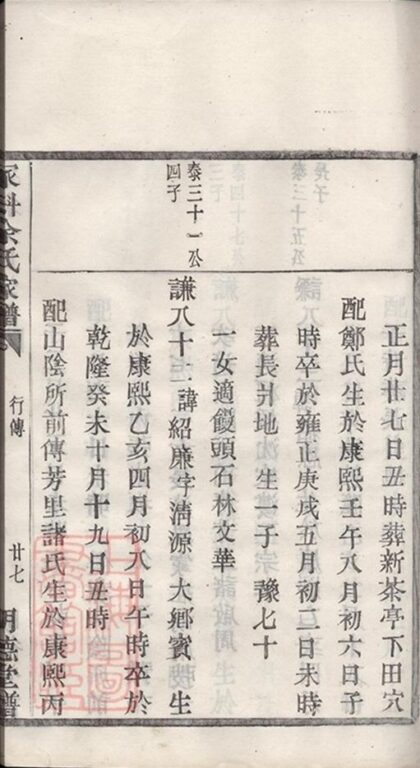 正月廿七日丑時葬新茶亭下田穴
配鄭氏生於康熙壬午八月初六日子
時卒於雍正庚戌五月初二日未時
葬長爿地 生一子 豫七十
一女適饅頭石林文華
泰三十一公
四子
謙八十二諱紹廉字淸源 大鄉賓 生
於康熙乙亥四月初八日午時卒於
乾隆癸未十月十九日丑時
配山陰所前傳芳里諸氏生於康熙丙
余氏家譜
行傳
廿七
明德堂譜